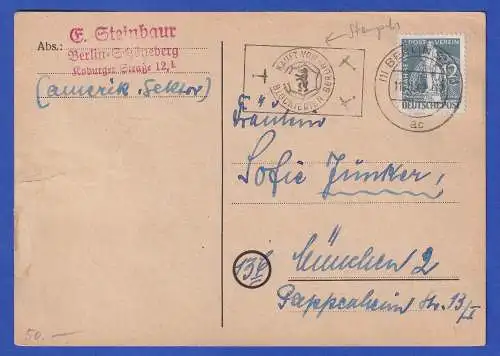 Abs.:
E. Steinbaur
Berlin-Schöneberg
Koburger Straße 12, I
(amerik. Sektor)
KAUFT VOM
BLOCKIERTEN
(1) BERLIN
11
ac
POST-VEREIN
DEUTSCHE POST
Fräulein
Sofie Junker,
(13b)
München 2
Pappenheim Str. 13/I
50.—